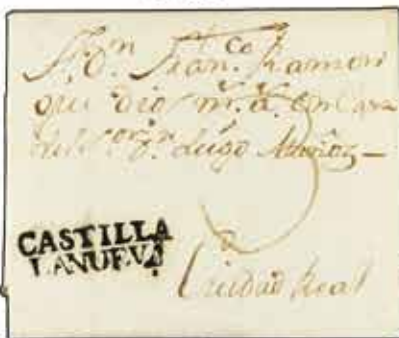 A D.n Fran.co Ramon
que Dios m.s a.s en Casa
del S.or D.n Diego Muñoz —
5
CASTILLA
LA NUEVA
Ciudad Real